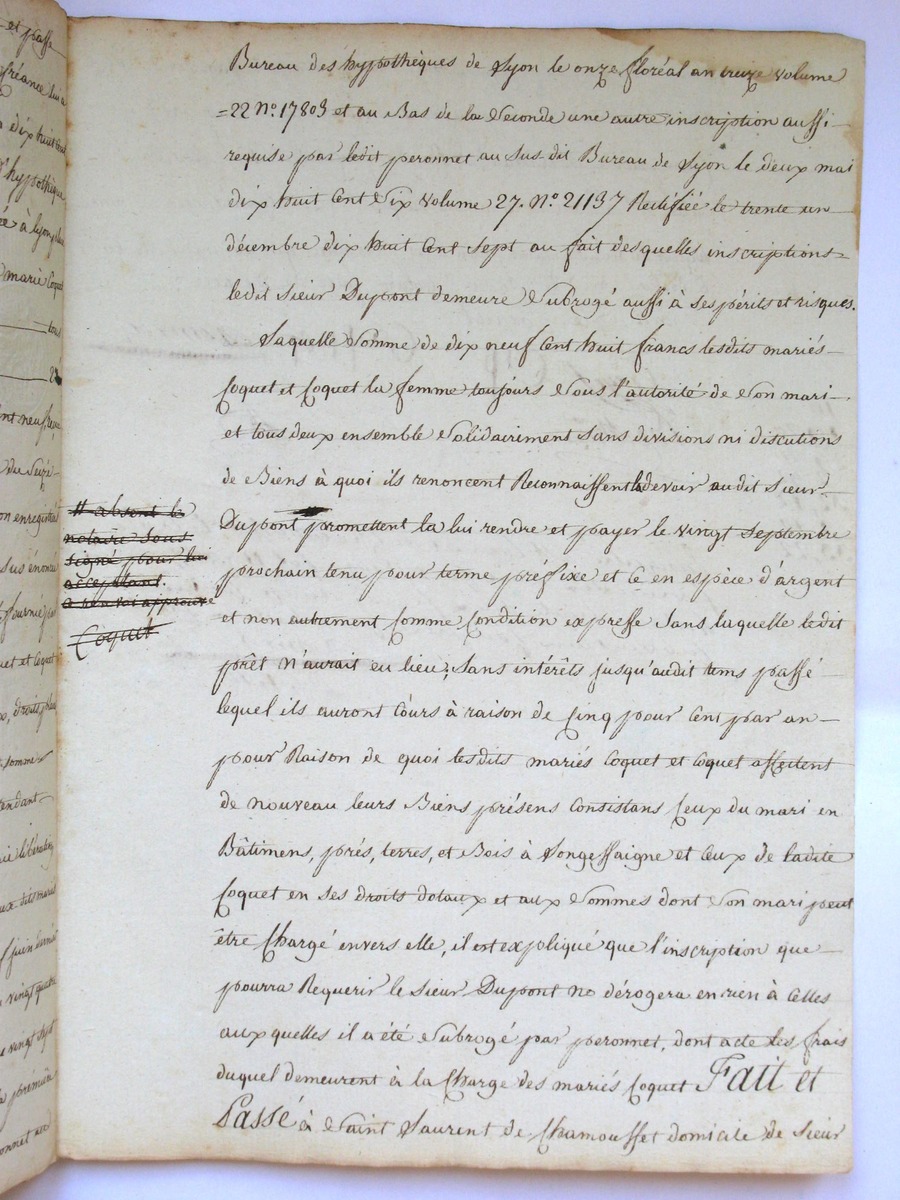 et passe
Bureau des hypothèques de Lyon le onze floréal an treize volume
=22 N.º 17803 et au Bas de la Seconde une autre inscription aussi
requise par ledit peronnet au sus-dit Bureau de Lyon le deux mai
dix huit Cent Six volume 27. N.º 21137 Rectifiée le trente un
décembre dix huit Cent Sept au fait desquelles inscriptions=
ledit Sieur Dupont demeure Subrogé aussi à ses périts et risques.
Laquelle Somme de dix neuf Cent huit francs lesdits mariés
Coquet et Coquet la femme toujours Sous l'autorité de Son mari
et tous deux ensemble Solidairement Sans divisions ni discutions
de Biens à quoi ils renoncent Reconnaissent la devoir audit Sieur
Dupont promettent la lui rendre et payer le vingt Septembre
prochain tenu pour terme préfixe et Ce en espèce d'argent
et non autrement Comme Condition expresse Sans laquelle ledit
prêt N'aurait eu lieu; Sans intérêts jusqu'audit tems passé
lequel ils auront Cours à raison de Cinq pour Cent par an
pour Raison de quoi lesdits mariés Coquet et Coquet affectent
de nouveau leurs Biens présens Consistans Ceux du mari en
Bâtimens, prés, terres, et Bois à Longessaigne et Ceux de ladite
Coquet en Ses droits dotaux et aux Sommes dont Son mari peut
être Chargé envers elle, il est expliqué que l'inscription que
pourra Requerir le Sieur Dupont ne dérogera en rien à Celles
auxquelles il a été Subrogé par peronnet, dont acte les frais
duquel demeurent à la Charge des mariés Coquet Fait et
Passé à Saint Laurent de Chamousset domicile de Sieur
# absent le
notaire Sous
signé pour lui
acceptant.
a renvoi approuvé
Coquet